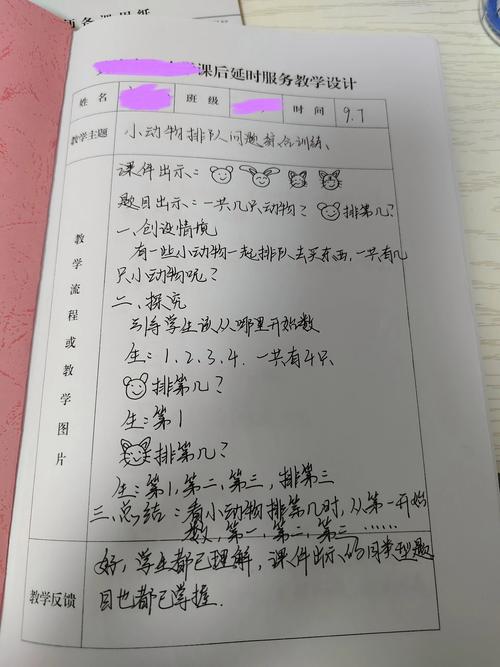 西备课用纸
课后延时服务教学设计
姓名 班级 时间 9.7
教学主题 小动物排队问题综合训练、
教学流程或教学图片
课件出示：
题目出示：一共几只动物？ 排第几？
一、创设情境
有一些小动物一起排队去买东西，一共有几
只小动物呢？
二、探究
引导学生该从哪里开始数
生：1、2、3、4. 一共有4只
排第几？
生：第1
排第几？
生：第1，第二、第三，排第三
三、总结：看小动物排第几时，从第一开始
数，第一、第二、第三……
教学反馈
好，学生都已理解，课件出示的同类型题
目也都已掌握.